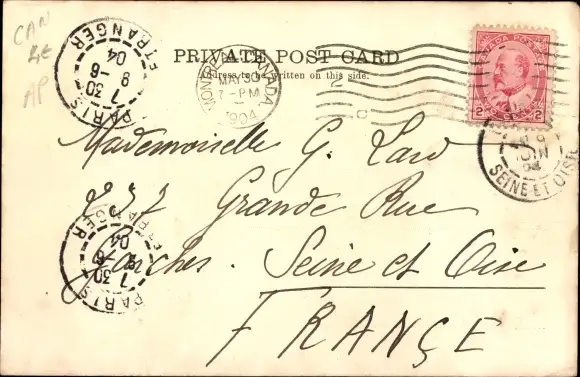 CAN
AP
PRIVATE POST CARD
Address to be written on this side.
MONTREAL CANADA
MAY 30
7-PM
1904
CANADA POSTAGE
2 2
PARIS ETRANGER
7 30
9 -6
04
9 JUIN
04
SEINE ET OISE
Mademoiselle G. Law
257 Grande Rue
Garches. Seine et Oise
FRANÇE
PARIS ETRANGER
7 30
-6
04